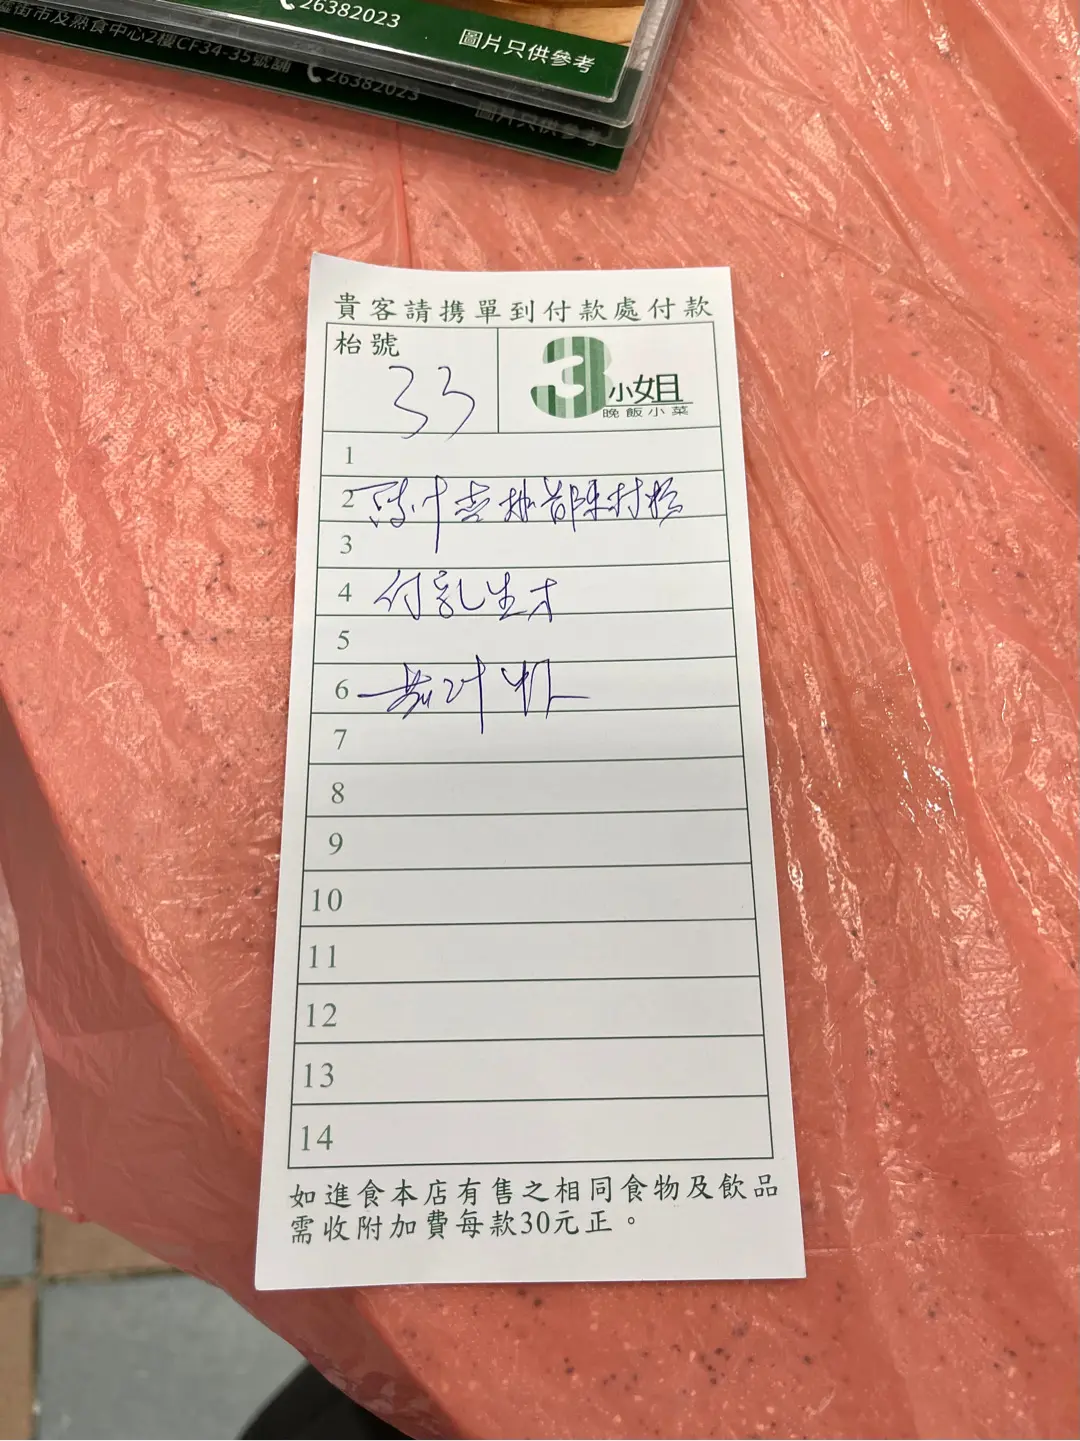 26382023
圖片只供參考
街市及熟食中心2樓CF34-35號舖 26382023
圖片只供參考
貴客請携單到付款處付款
枱號
33
3小姐
晚飯小菜
1
2 陳村粉
3
4 付乳生才
5
6
7
8
9
10
11
12
13
14
如進食本店有售之相同食物及飲品
需收附加費每款30元正。